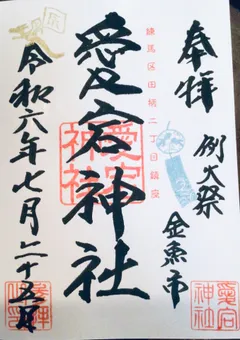 奉拝
例大祭
金魚市
練馬区田柄二丁目鎮座
愛宕神社
愛宕神社
令和六年七月二十五日
辰
愛宕神社